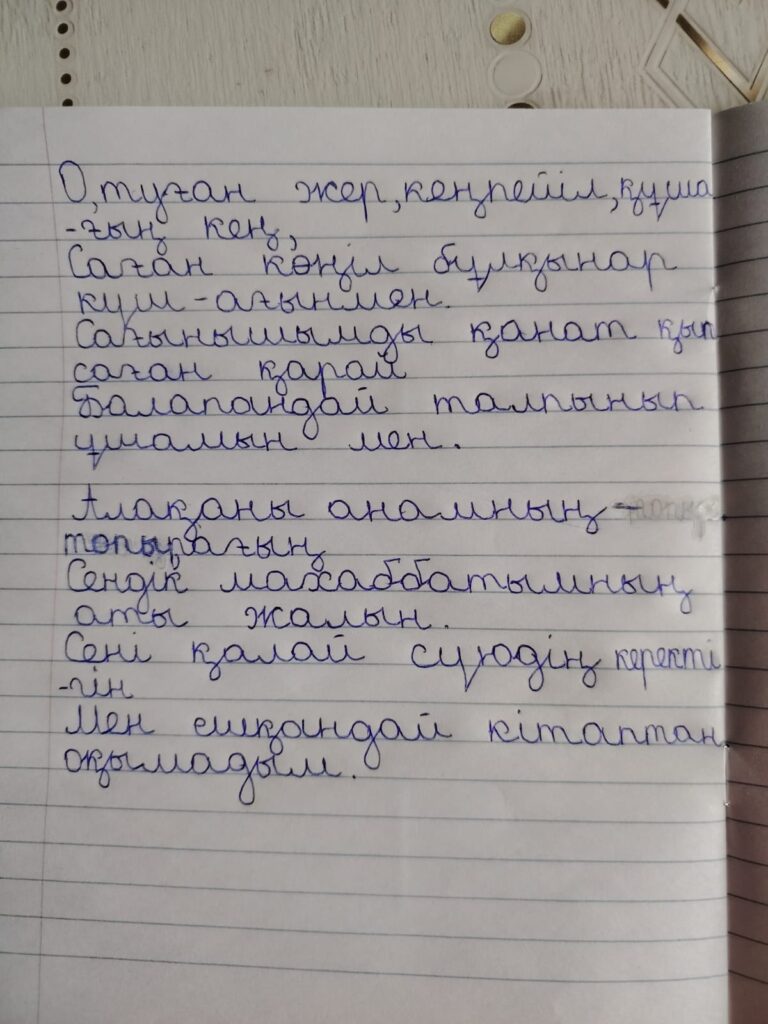 О,туған жер,кеңпейіл,құша
-ғың кең,
Саған көңіл бұлқынар
күш-ағынмен.
Сағынышымды қанат қып
саған қарай
Балапандай талпынып
ұшамын мен.
Алақаны анамның-
топырағың
Сендік махаббатымның
аты жалын.
Сені қалай сүюдің керекті
-гін
Мен ешқандай кітаптан
оқымадым.